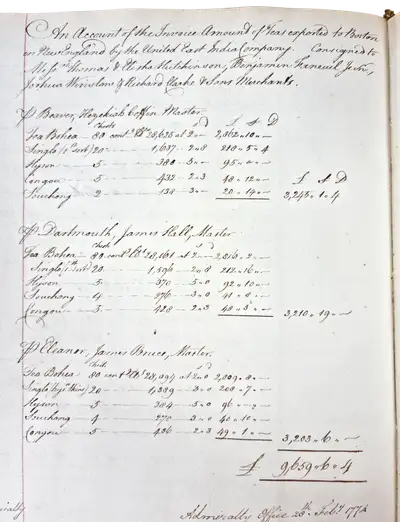 An Account of the Invoice Amount of Teas exported to Boston
in New England by the United East India Company. Consigned to
Messrs Thomas & Elisha Hutchinson, Benjamin Faneuil Junr,
Joshua Winslow & Richard Clarke & Sons Merchants.
P Beaver, Hezekiah Coffin Master
Chests s D £ s D
Tea Bohea 80 cont lbs 28,625 at 2 2,862 10
Singlo (1st sort) 20 1,637 2 8 218 5 4
Hyson 5 380 95
Congou 5 432 2 3 48 12 £ s D
Souchong 2 138 3 20 14 3,245 1 4
P Dartmouth, James Hall, Master
Chests s D
Tea Bohea 80 cont lbs 28,161 at 2 2,816 2
Singlo (1st sort) 20 1,596 2 8 212 16
Hyson 5 370 5 0 92 10
Souchong 4 276 3 0 41 8
Congou 5 428 2 3 48 3 3,210 19
P Eleanor, James Bruce, Master
Chests
Tea Bohea 80 cont lbs 28,094 at 2 0 2,809 8
Singlo 20 3 0 208 7
Hyson 5 384 5 0 96
Souchong 4 270 3 0 40 10
Congou 5 436 2 3 49 1 3,203 6
£ 9,659 6 4
Admiralty Office 28th Feby 1774